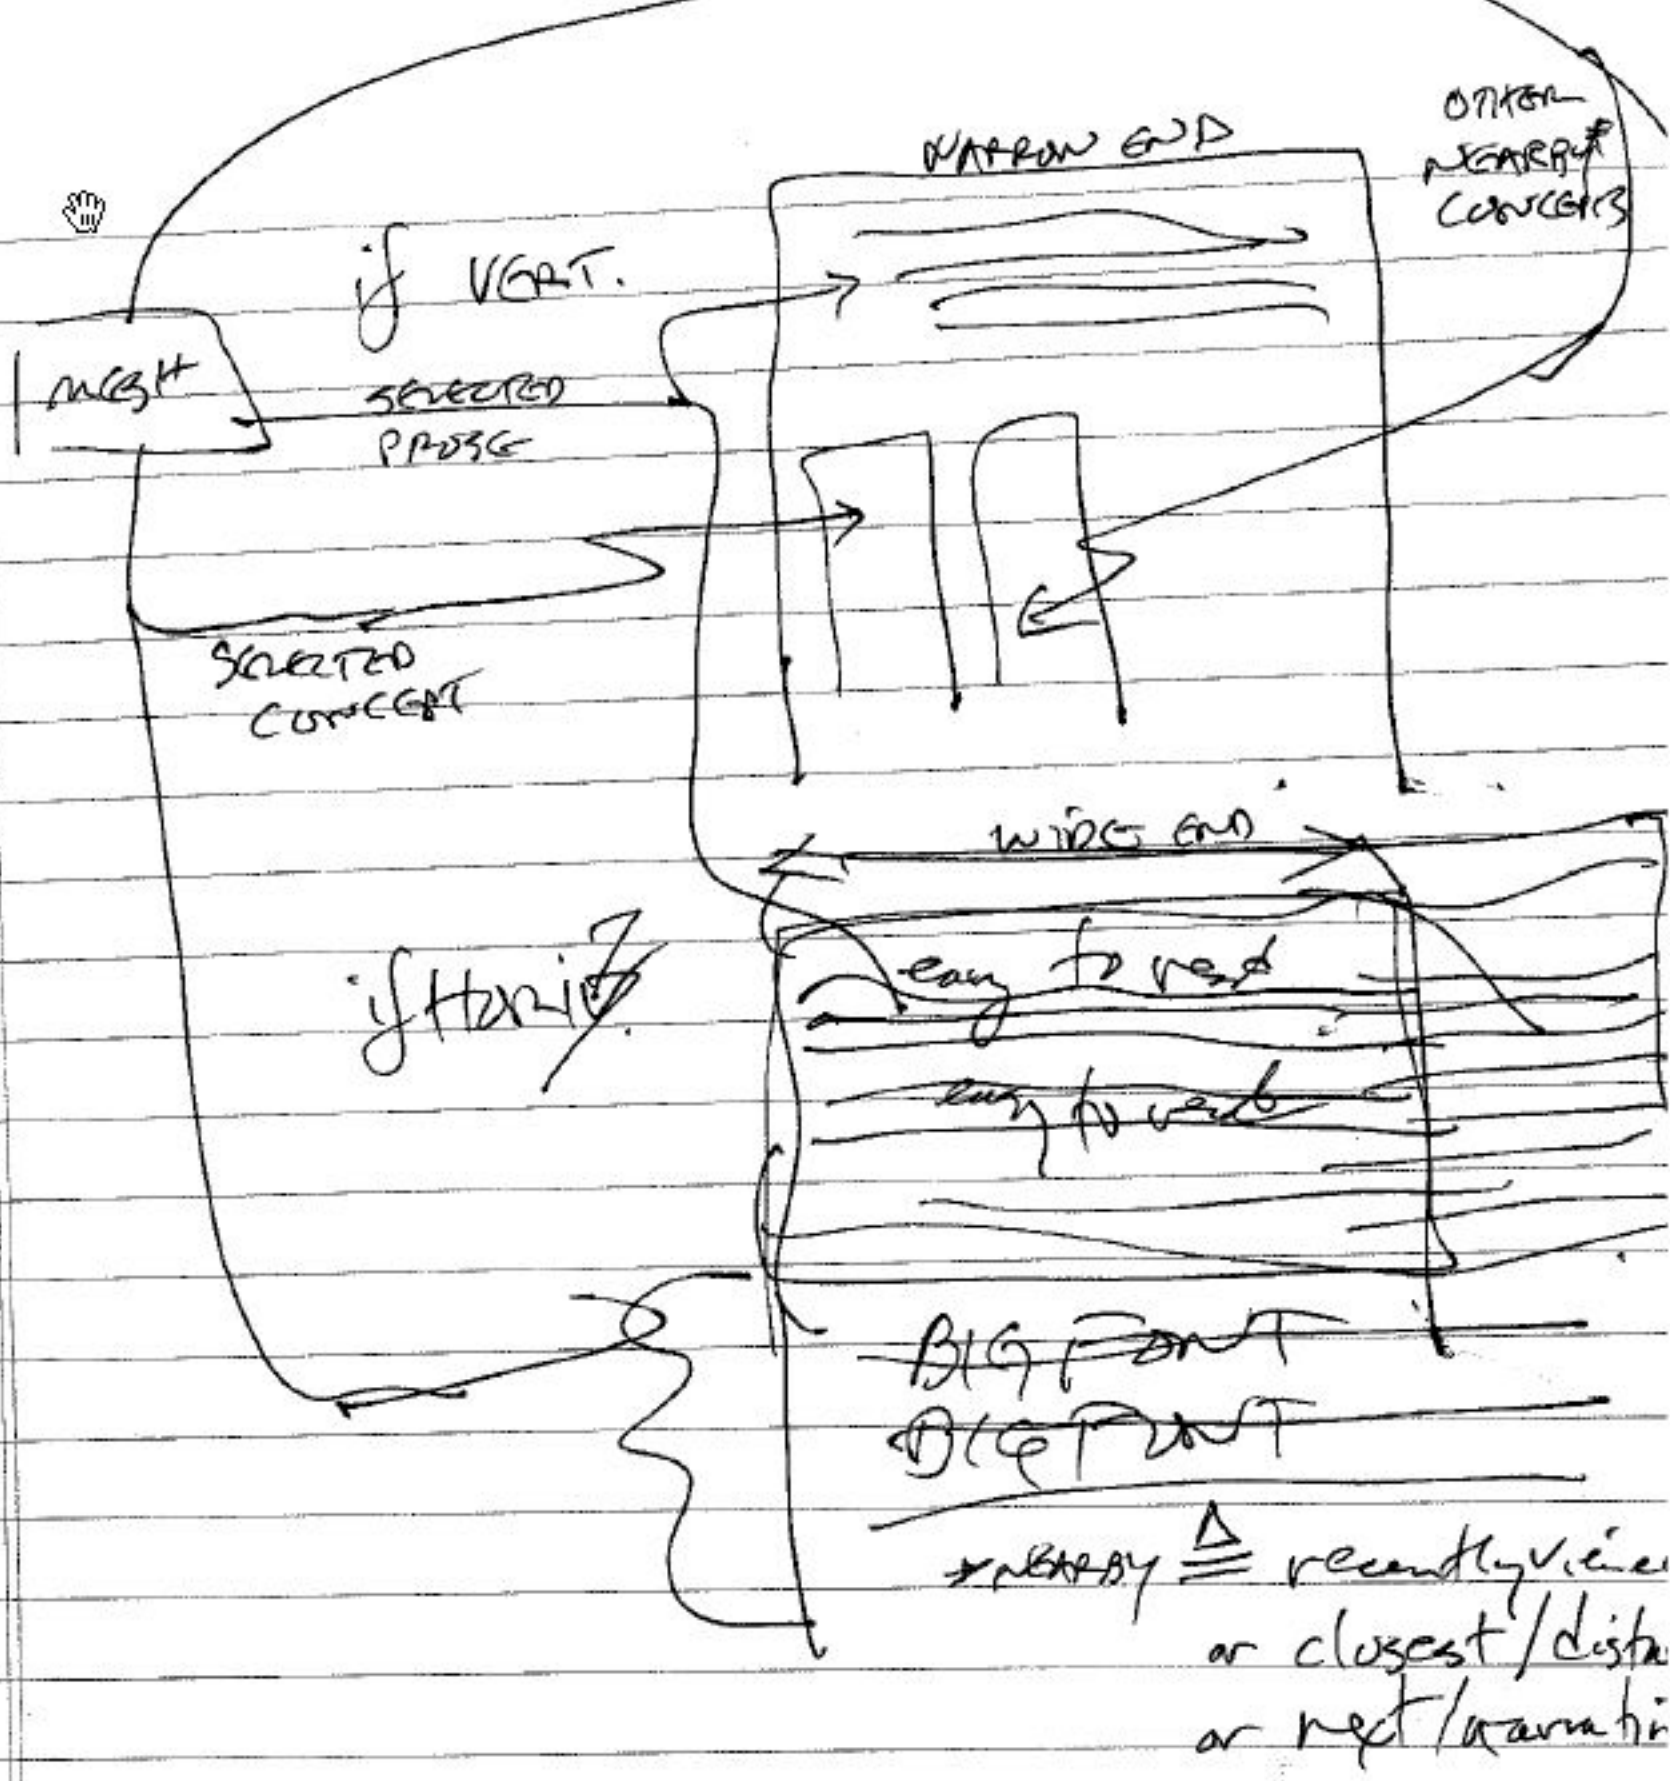 OTHER
NEARBY*
CONCEPTS
NARROW END
if VERT.
MESH
SELECTED
PROSE
SELECTED
CONCEPT
WIDE END
if Horiz.
easy to read
easy to read
BIG FONT
BIG FONT
*NEARBY ≜ recently viewe
or closest/dista
or next/narrativ